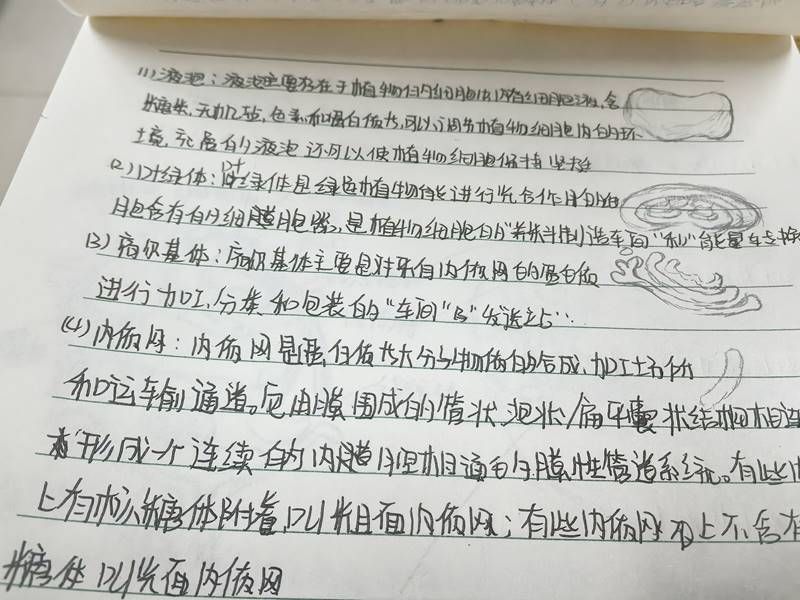 (1)液泡：液泡主要存在于植物的细胞内,内有细胞液,含
糖类,无机盐,色素和蛋白质等,可以调节植物细胞内的环
境,充盈的液泡还可以使植物细胞保持坚挺
(2)叶绿体：叶绿体是绿色植物能进行光合作用的细
胞含有的细胞器。是植物细胞的"养料制造车间"和"能量转换
(3)高尔基体：高尔基体主要是对来自内质网的蛋白质
进行加工,分类和包装的"车间"及"发送站".
(4)内质网：内质网是蛋白质等大分子物质的合成,加工场所
和运输通道。它由膜围成的管状、泡状/扁平囊状结构相连
形成一个连续的内膜腔相通的膜性管道系统。有些内
上有核糖体附着,叫粗面内质网；有些内质网上不含有
糖体叫光面内质网